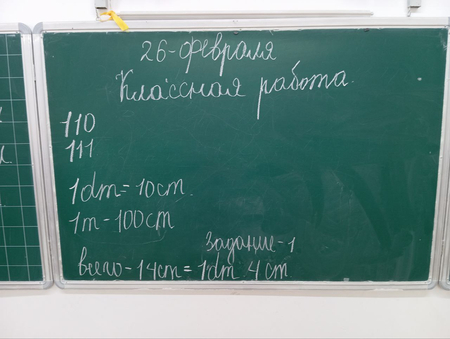 26-февраля
Классная работа.
110
111
1dm=10cm.
1m-100cm
Задание-1
всего-14cm=1dm 4cm